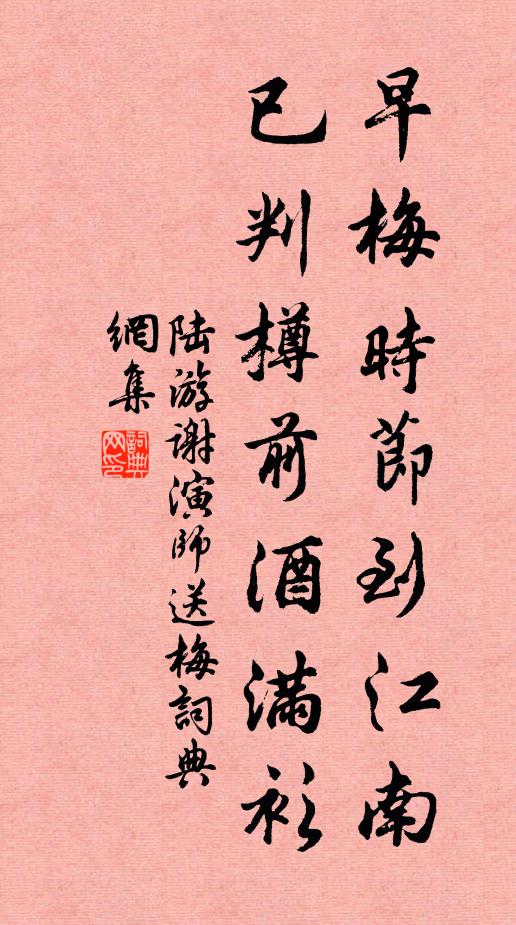 早梅時節到江南
已判樽前酒满衫
陆游谢演師送梅詞典
網集
詞典网印